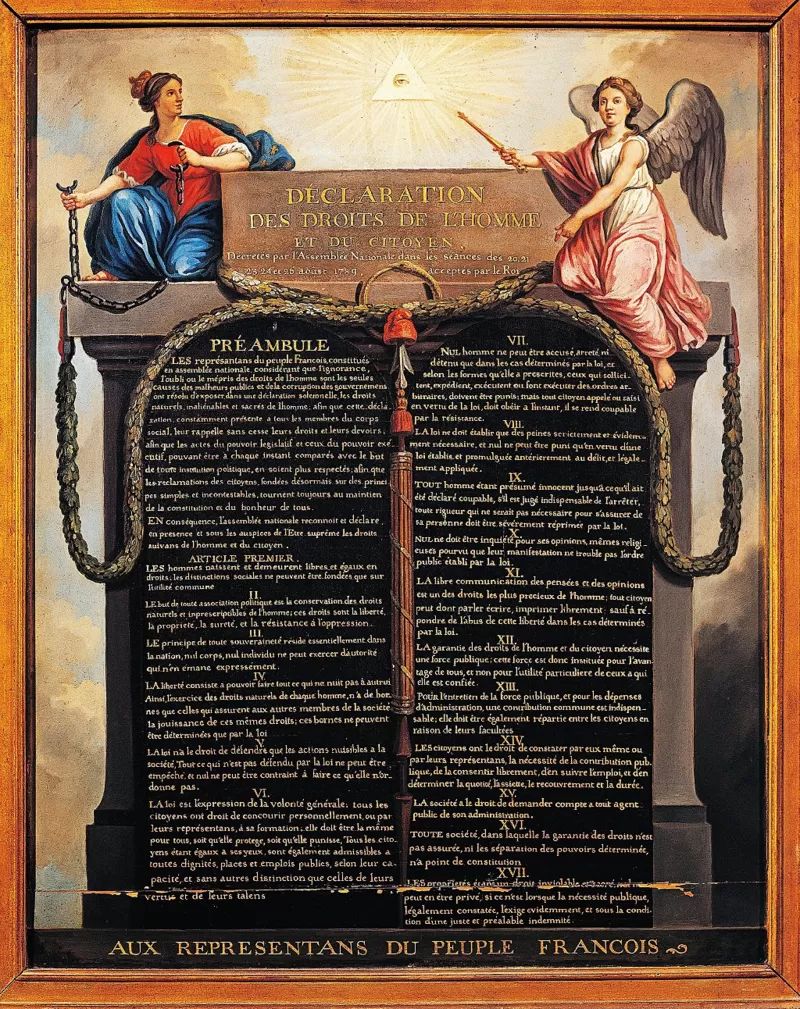 DÉCLARATION
DES DROITS DE L'HOMME
ET DU CITOYEN,
Décretés par l'Assemblée Nationale dans les séances des 20, 21
23, 24 et 26 août 1789, acceptés par le Roi
PRÉAMBULE
LES représantans du peuple Francois, constitués
en assemblée nationale, considérant que l'ignorance,
l'oubli ou le mépris des droits de l'homme sont les seules
causes des malheurs publics et de la corruption des gouvernemens
ont résolu d'exposer, dans une déclaration solemnelle, les droits
naturels, inaliénables et sacrés de l'homme, afin que cette, décla
ration, constamment présente a tous les membres du corps
social, leur rappelle sans cesse leurs droits et leurs devoirs,
afin que les actes du pouvoir législatif et ceux du pouvoir exé
cutif, pouvant être a chaque instant comparés avec le but
de toute institution politique, en soient plus respectés; afin que
les reclamations des citoyens, fondées désormais sur des princi
pes simples et incontestables, tournent toujours au maintien
de la constitution et du bonheur de tous.
EN conséquence, l'assemblée nationale reconnoit et déclare,
en presence et sous les auspices de l'Etre suprême les droits
suivans de l'homme et du citoyen.
ARTICLE PREMIER.
LES hommes naissent et demeurent libres et égaux en
droits; les distinctions sociales ne peuvent être fondées que sur
l'utilité commune
II.
LE but de toute association politique est la conservation des droits
naturels et imprescriptibles de l'homme; ces droits sont la liberté,
la propriété, la sureté, et la résistance à l'oppression.
III.
LE principe de toute souveraineté réside essentiellement dans
la nation, nul corps, nul individu ne peut exercer d'autorité
qui n'en émane expressément.
IV.
LA liberté consiste a pouvoir faire tout ce qui ne nuit pas à autrui
Ainsi, l'exercice des droits naturels de chaque homme, n'a de bor-
nes que celles qui assurent aux autres membres de la société
la jouissance de ces mêmes droits; ces bornes ne peuvent
être déterminées que par la loi
V.
LA loi n'a le droit de défendre que les actions nuisibles a la
société, Tout ce qui n'est pas défendu par la loi ne peut être
empêché, et nul ne peut être contraint à faire ce qu'elle n'or-
donne pas.
VI.
LA loi est l'expression de la volonté générale; tous les
citoyens ont droit de concourir personnellement, ou par
leurs représentans, à sa formation; elle doit être la même
pour tous, soit qu'elle protege, soit qu'elle punisse, Tous les cito-
yens étant égaux à ses yeux, sont également admissibles a
toutes dignités, places et emplois publics, selon leur ca-
pacité, et sans autres distinction que celles de leurs
vertus et de leurs talens
VII.
NUL homme ne peut être accusé, arreté ni
détenu que dans les cas déterminés par la loi, et
selon les formes qu'elle a prescrites, ceux qui sollici-
tent, expédient, exécutent ou font exécuter des ordres ar-
bitraires, doivent être punis; mais tout citoyen appelé ou saisi
en vertu de la loi, doit obéir a l'instant, il se rend coupable
par la résistance.
VIII.
LA loi ne doit établir que des peines strictement et évidem-
ment nécessaire, et nul ne peut être puni qu'en vertu d'une
loi établie et promulguée antérierement au délit, et légale-
ment appliquée.
IX.
TOUT homme étant présumé innocent jusqu'a ce qu'il ait
été déclaré coupable, s'il est jugé indispensable de l'arrêter,
toute rigueur qui ne serait pas nécessaire pour s'assurer de
sa personne doit être sévèrement réprimée par la loi.
X.
NUL ne doit être inquiété pour ses opinions, mêmes religi-
euses pourvu que leur manifestation ne trouble pas l'ordre
public établi par la loi.
XI.
LA libre communication des pensées et des opinions
est un des droits les plus precieux de l'homme; tout citoyen
peut dont parler écrire, imprimer librement, sauf à ré-
pondre de l'abus de cette liberté dans les cas déterminés
par la loi.
XII.
LA garantie des droits de l'homme et du citoyen nécessite
une force publique; cette force est donc instituée pour l'avan-
tage de tous, et non pour l'utilité particuliere de ceux a qui
elle est confiée.
XIII.
Pour l'entretien de la force publique, et pour les dépenses
d'administration, une contribution commune est indispen-
sable; elle doit être également répartie entre les citoyens en
raison de leurs facultées
XIV.
LES citoyens ont le droit de constater par eux même ou
par leurs représentans, la nécessité de la contribution pub-
lique, de la consentir librement, d'en suivre l'emploi, et d'en
déterminer la quotité, l'assiette, le recouvrement et la durée.
XV.
LA société a le droit de demander compte a tout agent
public de son administration.
XVI.
TOUTE société, dans laquelle la garantie des droits n'est
pas assurée, ni les séparation des pouvoirs déterminée,
n'a point de constitution
XVII.
LES proprietés étant un droit inviolable et sacré, nul ne
peut en être privé, si ce n'est lorsque la nécessité publique,
légalement constatée, l'exige evidemment, et sous la condi-
tion d'une juste et préalable indemnité.
AUX REPRESENTANS DU PEUPLE FRANCOIS